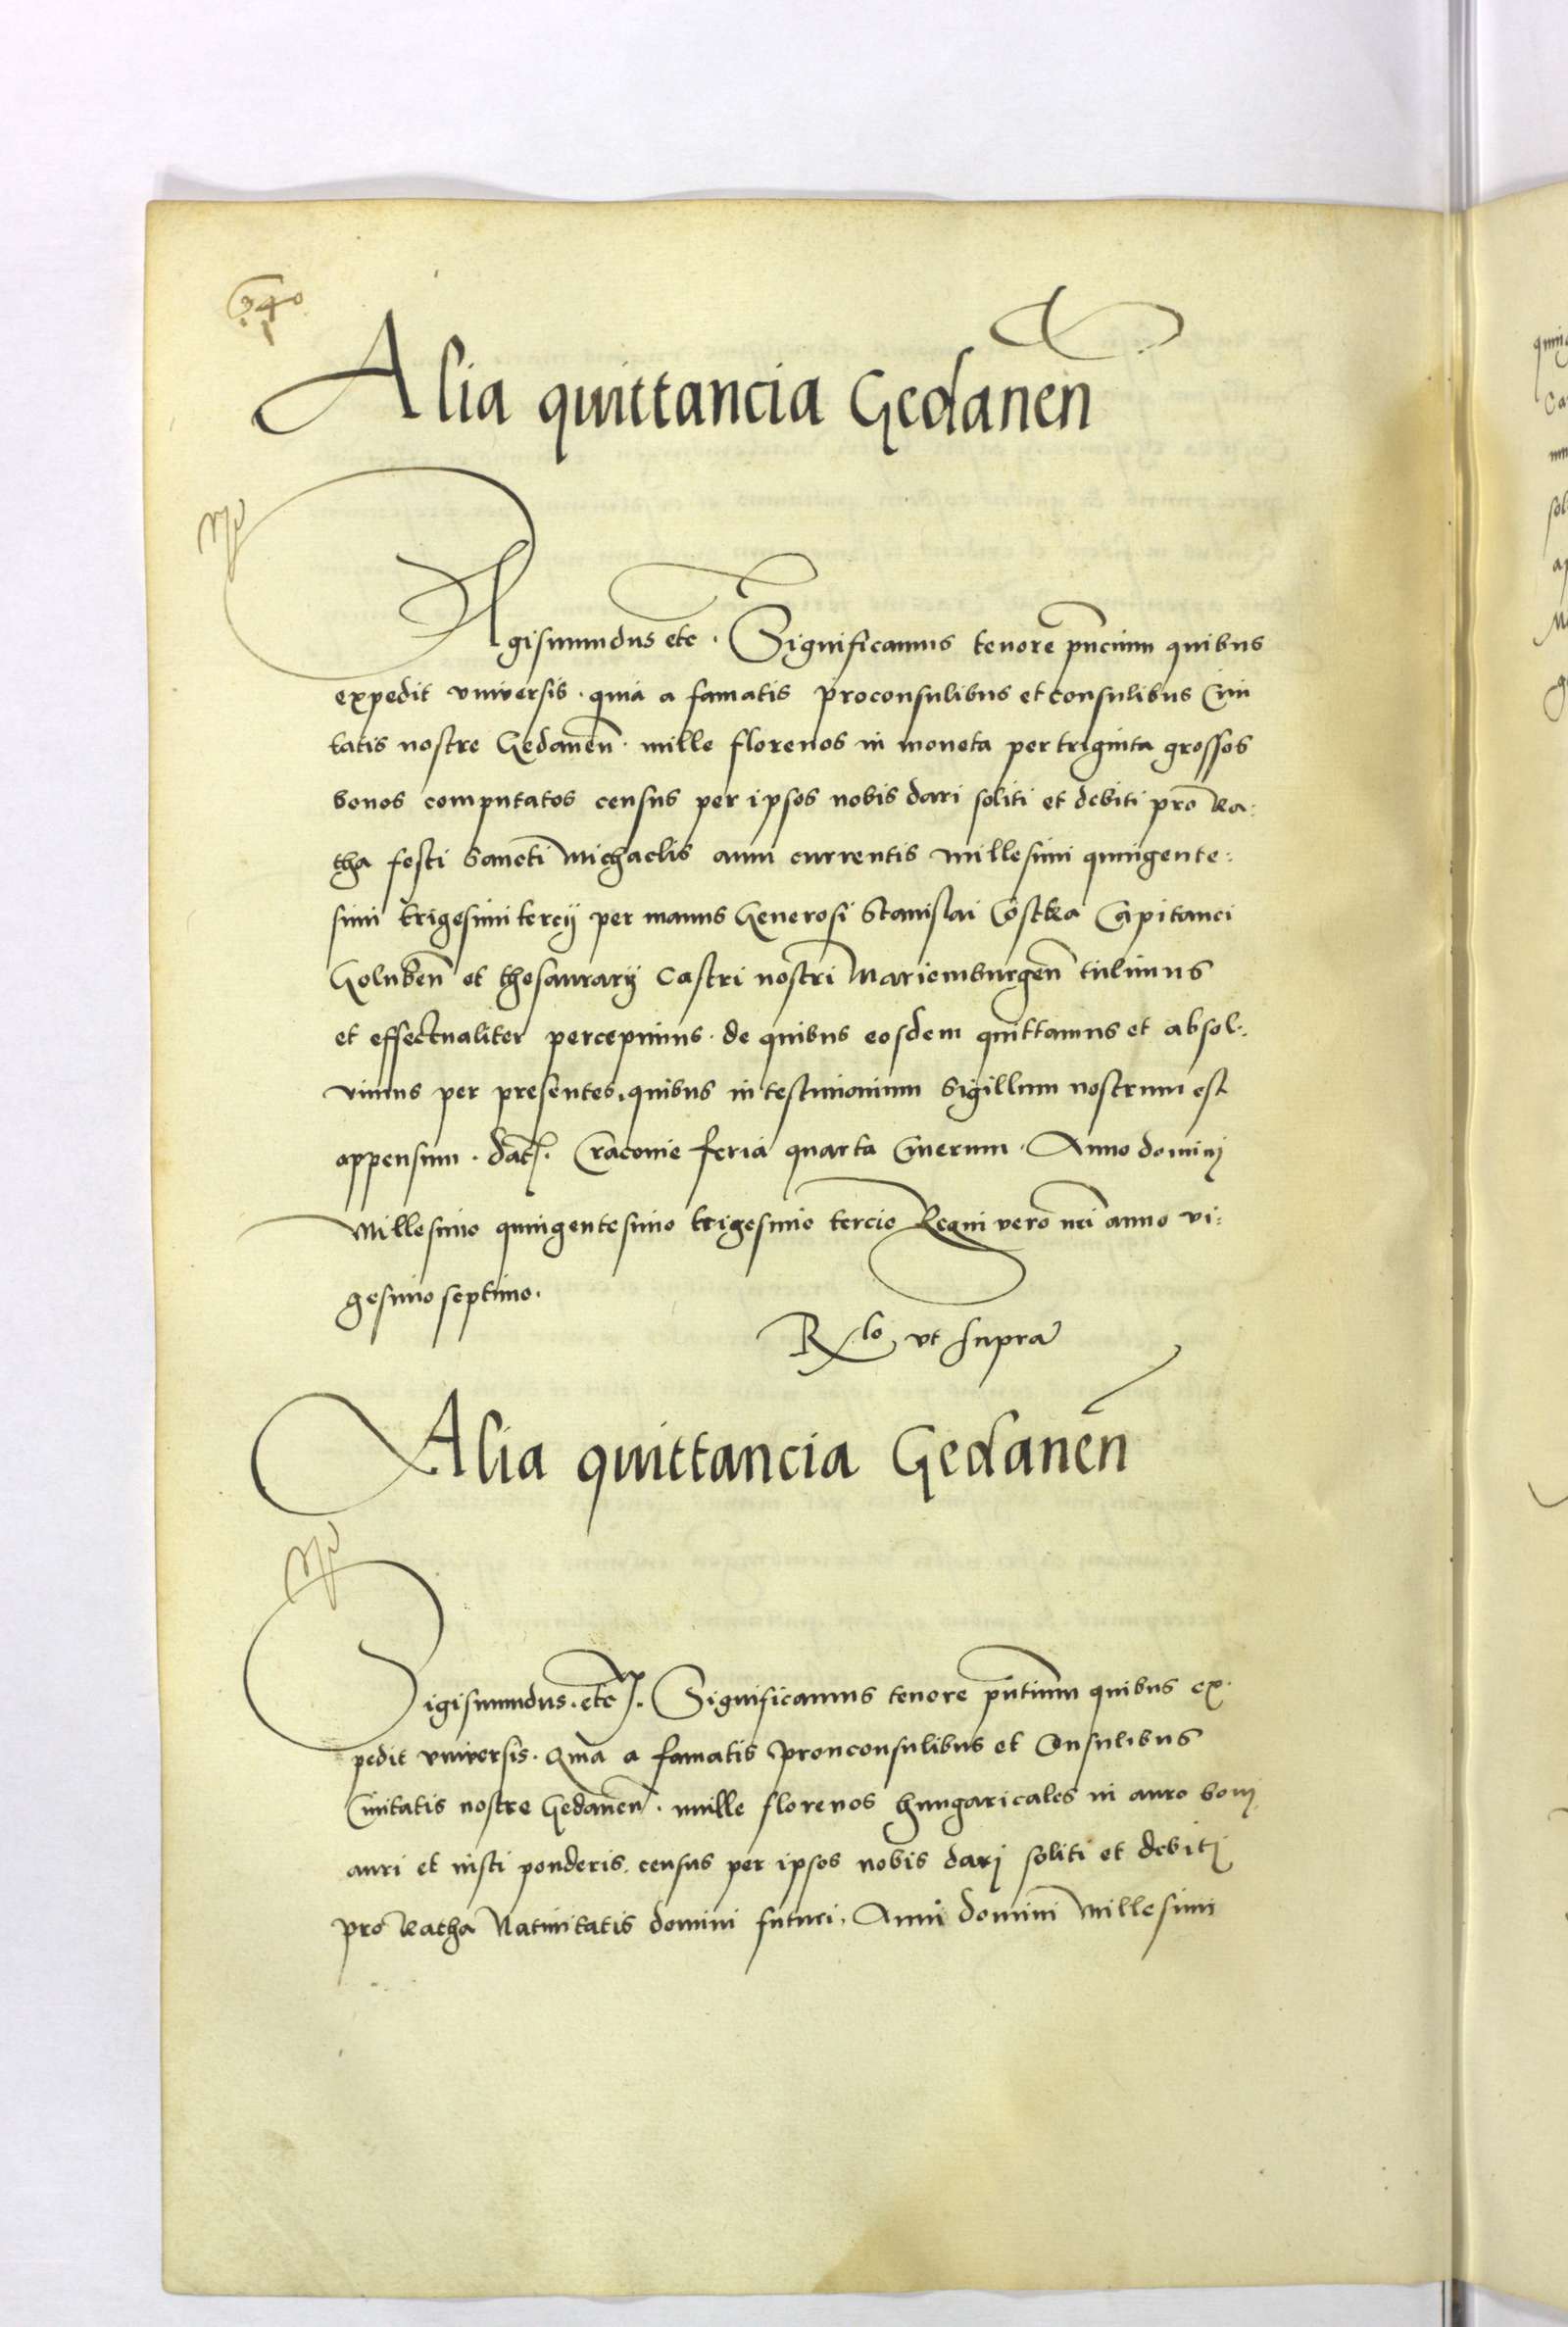 Alia quittancia Gedanen
Sigismundus etc. Significamus tenore pncium quibus
expedit vniversis. quia a famatis proconsulibus et consulibus Civi
tatis nostre Gedanen. mille florenos in moneta per triginta grossos
bonos computatos census per ipsos nobis dari soliti et debiti pro Ra:
tha festi Sancti Michaelis anni currentis millesimi quingente:
simi trigesimi tercij per manus Generosi Stanislai Costka Capitanei
Goluben et thesaurarij Castri nostri Mariemburgen tulimus
et effectualiter percepimus. de quibus eosdem quittamus et absol:
vimus per presentes. quibus in testimonium Sigillum nostrum est
appensum. dat. Cracovie feria quarta Cinerum. Anno dominj
Millesimo quingentesimo trigesimo tercio Regni vero nri anno vi:
gesimo septimo.
Rlo vt supra
Alia quittancia Gedanen
Sigismundus. etc. Significamus tenore pntium quibus ex
pedit vniversis. Quia a famatis pronconsulibus et Consulibus
Civitatis nostre Gedanen. mille florenos hungaricales in auro bonj
auri et iusti ponderis. census per ipsos nobis darj soliti et debitj
pro Ratha Nativitatis domini futuri. Anni domini Millesimi